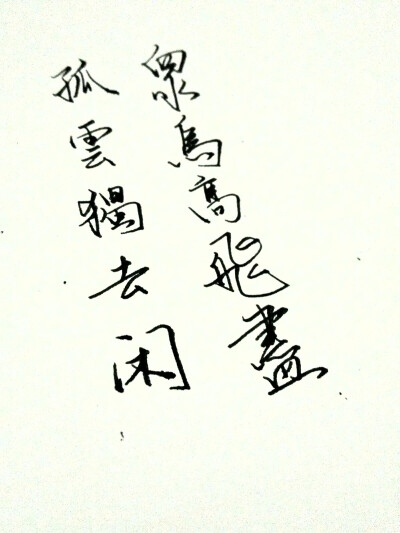 眾鳥高飛盡
孤雲獨去闲